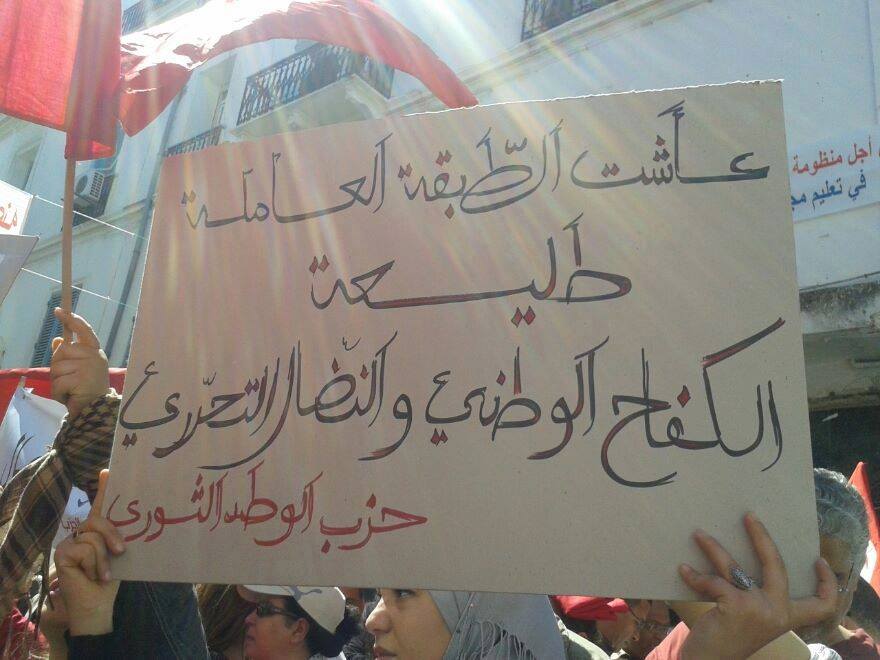 عاشت الطّبقة العاملة
طليعة
الكفاح الوطني والنضّال التحرّري
حزب الوطد الثوري
أجل منظومة
في تعليم